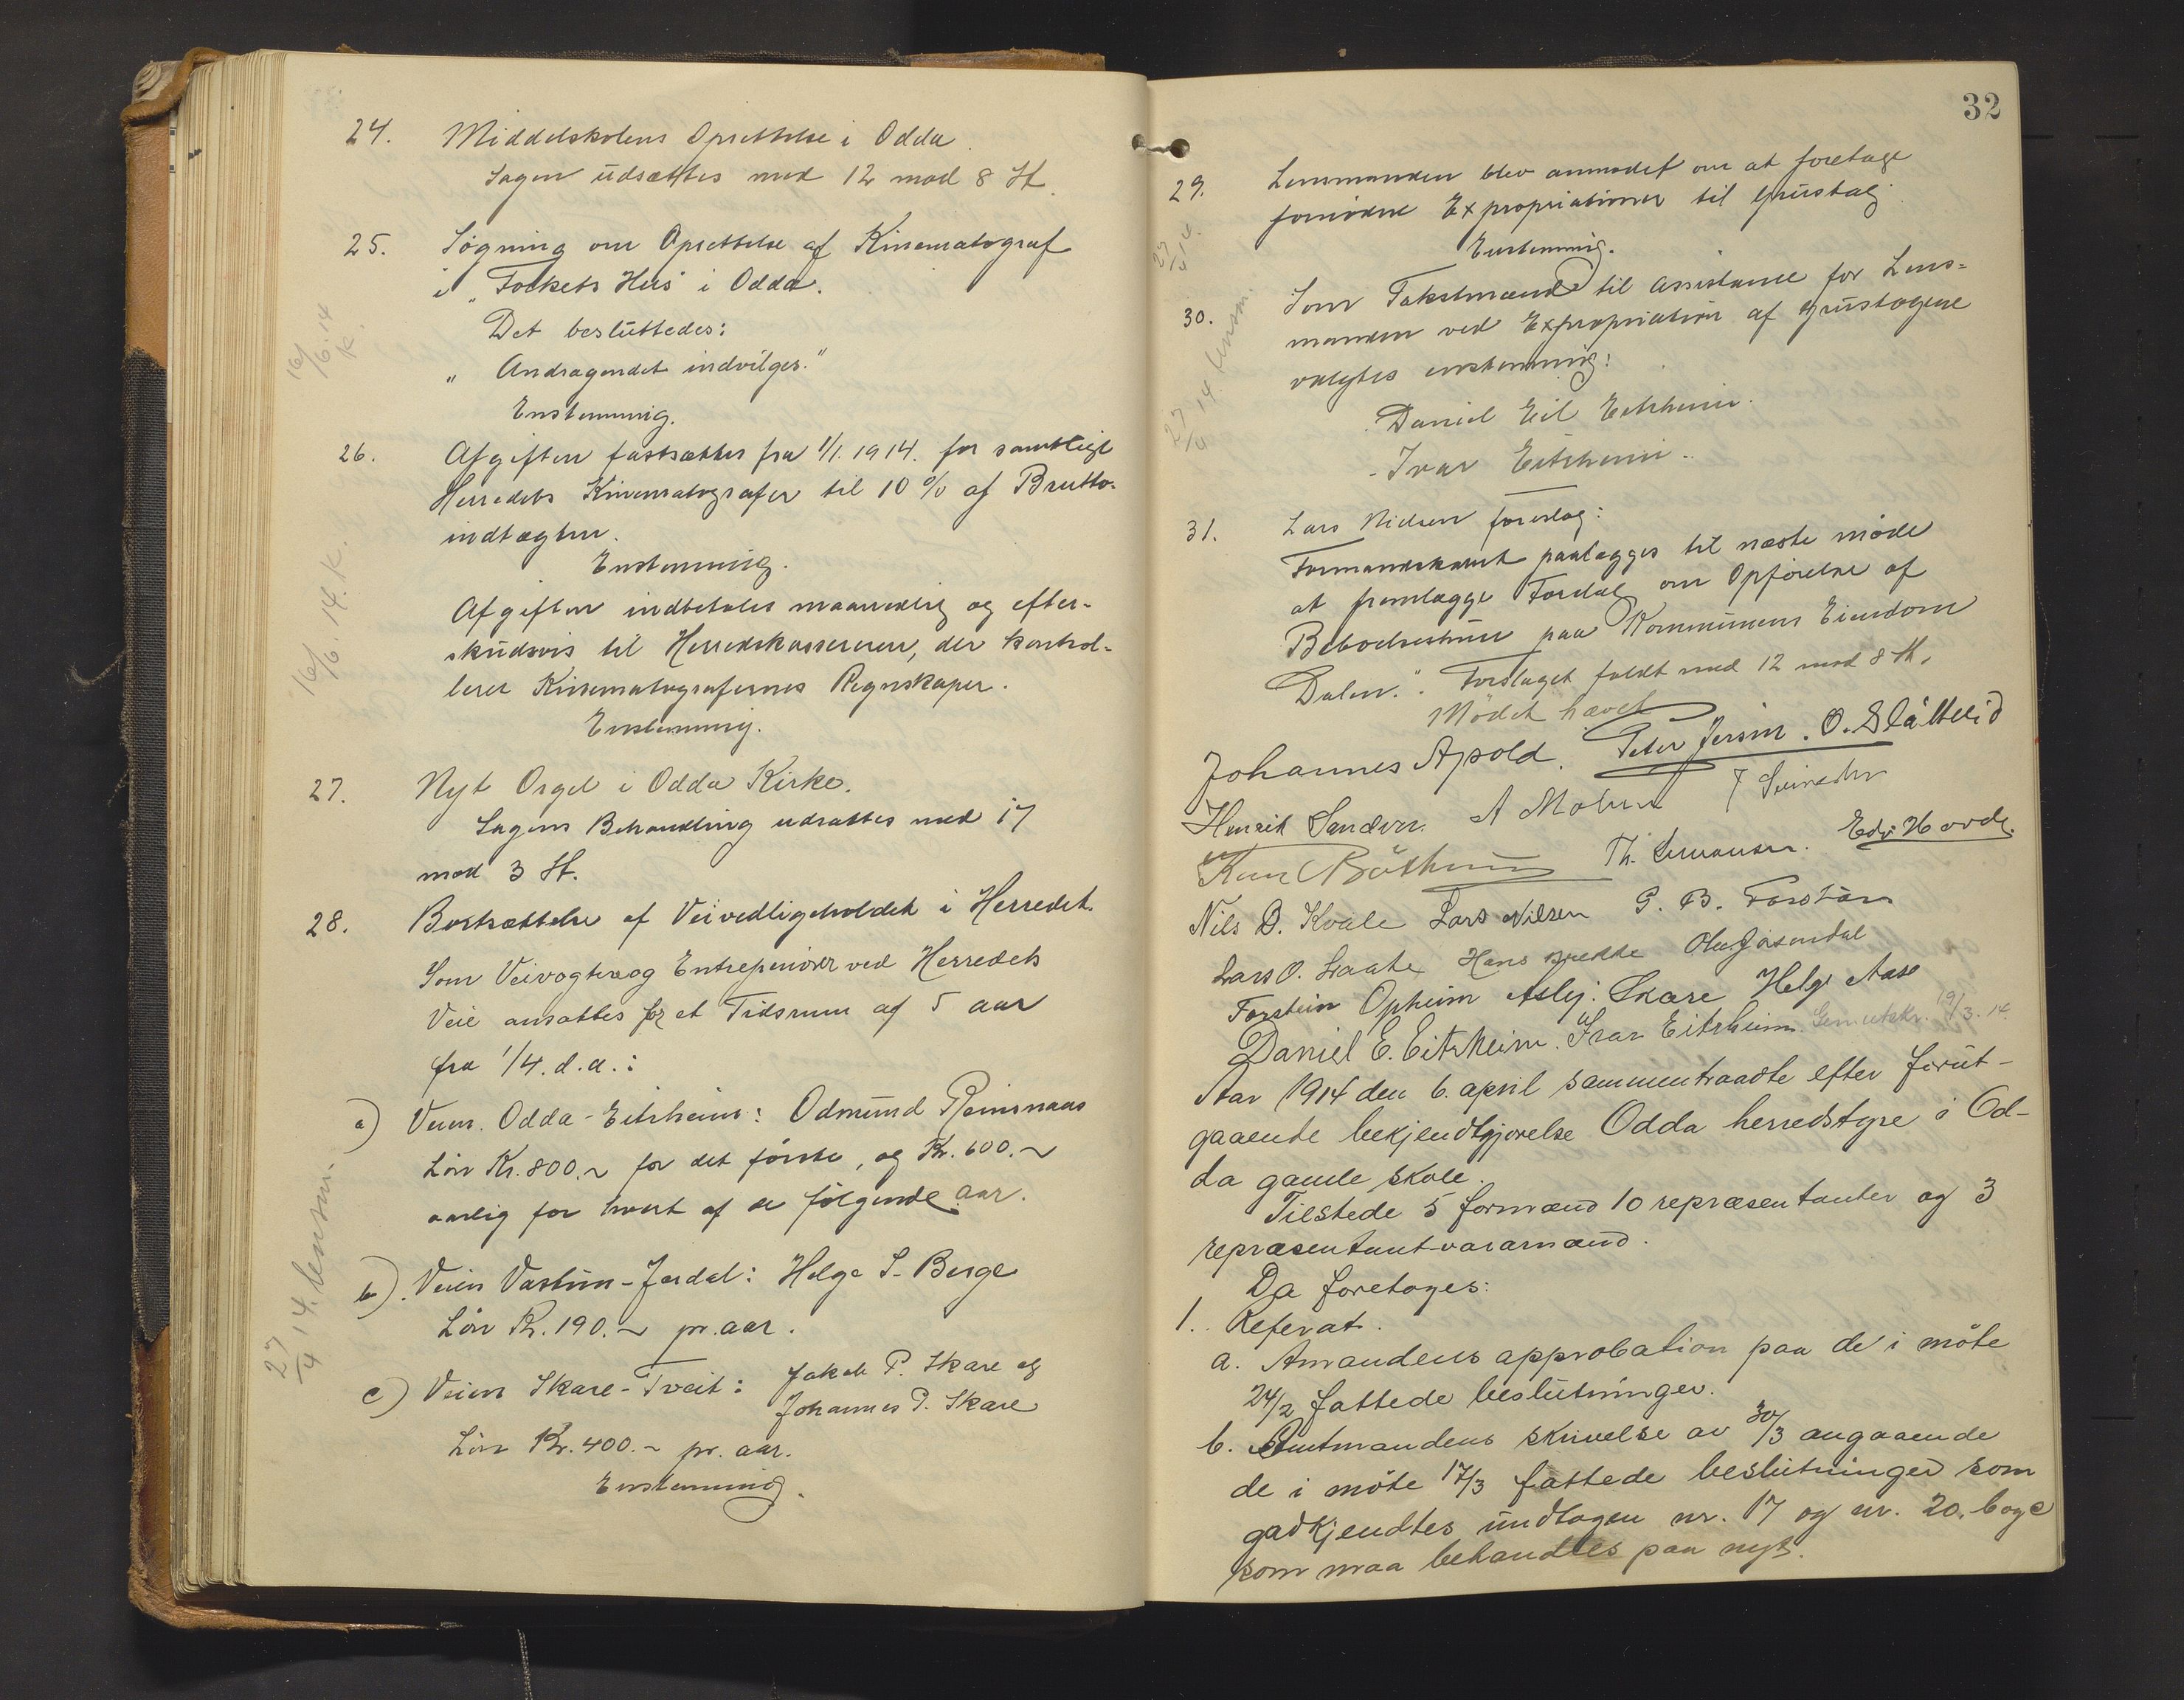 24. Middelskolens Oprettelse i Odda.
Sagen udsættes med 12 mod 8 St.
25. Søgning om Oprettelse af Kinematograf
i „Folkets Hus" i Odda.
Det besluttedes:
„Andragendet indvilges."
Enstemmig.
16/6.14 K.
26. Afgiften fastsættes fra 1/1. 1914. for samtlige
Herredets Kinematografer til 10 % af Brutto-
indtægten.
Enstemmig.
Afgiften indbetales maanedlig og efter-
skudsvis til Herredskassereren, der kontrol-
lerer Kinematografernes Regnskaper.
Enstemmig.
16/6.14. K.
27. Nyt Orgel i Odda Kirke.
Sagens Behandling udsættes med 17
mod 3 St.
28. Bortsættelse af Veivedligeholdet i Herredet.
Som Veivogtere og Entreprenører ved Herredets
Veie ansattes for et Tidsrum af 5 aar
fra 1/4. d.a.:
a) Veien. Odda-Eitrheim: Odmund Reinsnaas
Løn Kr. 800.~ for det første, og Kr. 600.~
aarlig for hvert af de følgende aar.
b). Veien Vastun-Jordal: Helge S. Berge
Løn Kr. 190.~ pr. aar.
c) Veien Skare-Tveit: Jakob P. Skare og
Johannes P. Skare
Løn Kr. 400.~ pr. aar.
Enstemmig.
27/4 14. lensm.
32
29. Lensmanden blev anmodet om at foretage
fornødne Expropriationer til Grustag.
Enstemmig.
27/4 14.
30. Som Takstmænd til Assistanse for Lens-
manden ved Expropriation af Grustagene
valgtes enstemmig:
Daniel Eil Eitrheim.
- Ivar Eitrheim.
27/4 14. lensm.
31. Lars Nielsen foreslog:
Formandskabet paalægges til næste møde
at fremlægge Forslag om Opførelse af
Beboelseshuse paa Kommunens Eiendom
Dalen.". Forslaget faldt med 12 mod 8 St.
Mødet hævet
Johannes Apold. Peter Jersin. O. Slåttelid
Henrik Sandven. A Mo
Knu Th. Edv. Hovde.
Nils D. Kvale Lars Nilsen G. B.
Lars O. Hans Brekke Olav Jøsendal
Torstein Opheim Aslej. Skare Helge Aase
Daniel E. Eitrheim. Ivar Eitrheim. Gjenutskr. 19/3. 14.
Aar 1914 den 6. april sammentraadte efter forut-
gaaende bekjendtgjørelse Odda herredstyre i Od-
da gamle skole.
Tilstede 5 formænd 10 repræsentanter og 3
repræsentantvaramænd.
Da foretoges:
1. Referat.
a. Amtmandens approbation paa de i møte
24/2 fattede beslutninger.
b. Amtmandens skrivelse av 30/3 angaaende
de i møte 17/3 fattede beslutninger som
godkjendtes undtagen nr. 17 og nr. 20. b og c
som maa behandles paa nyt.